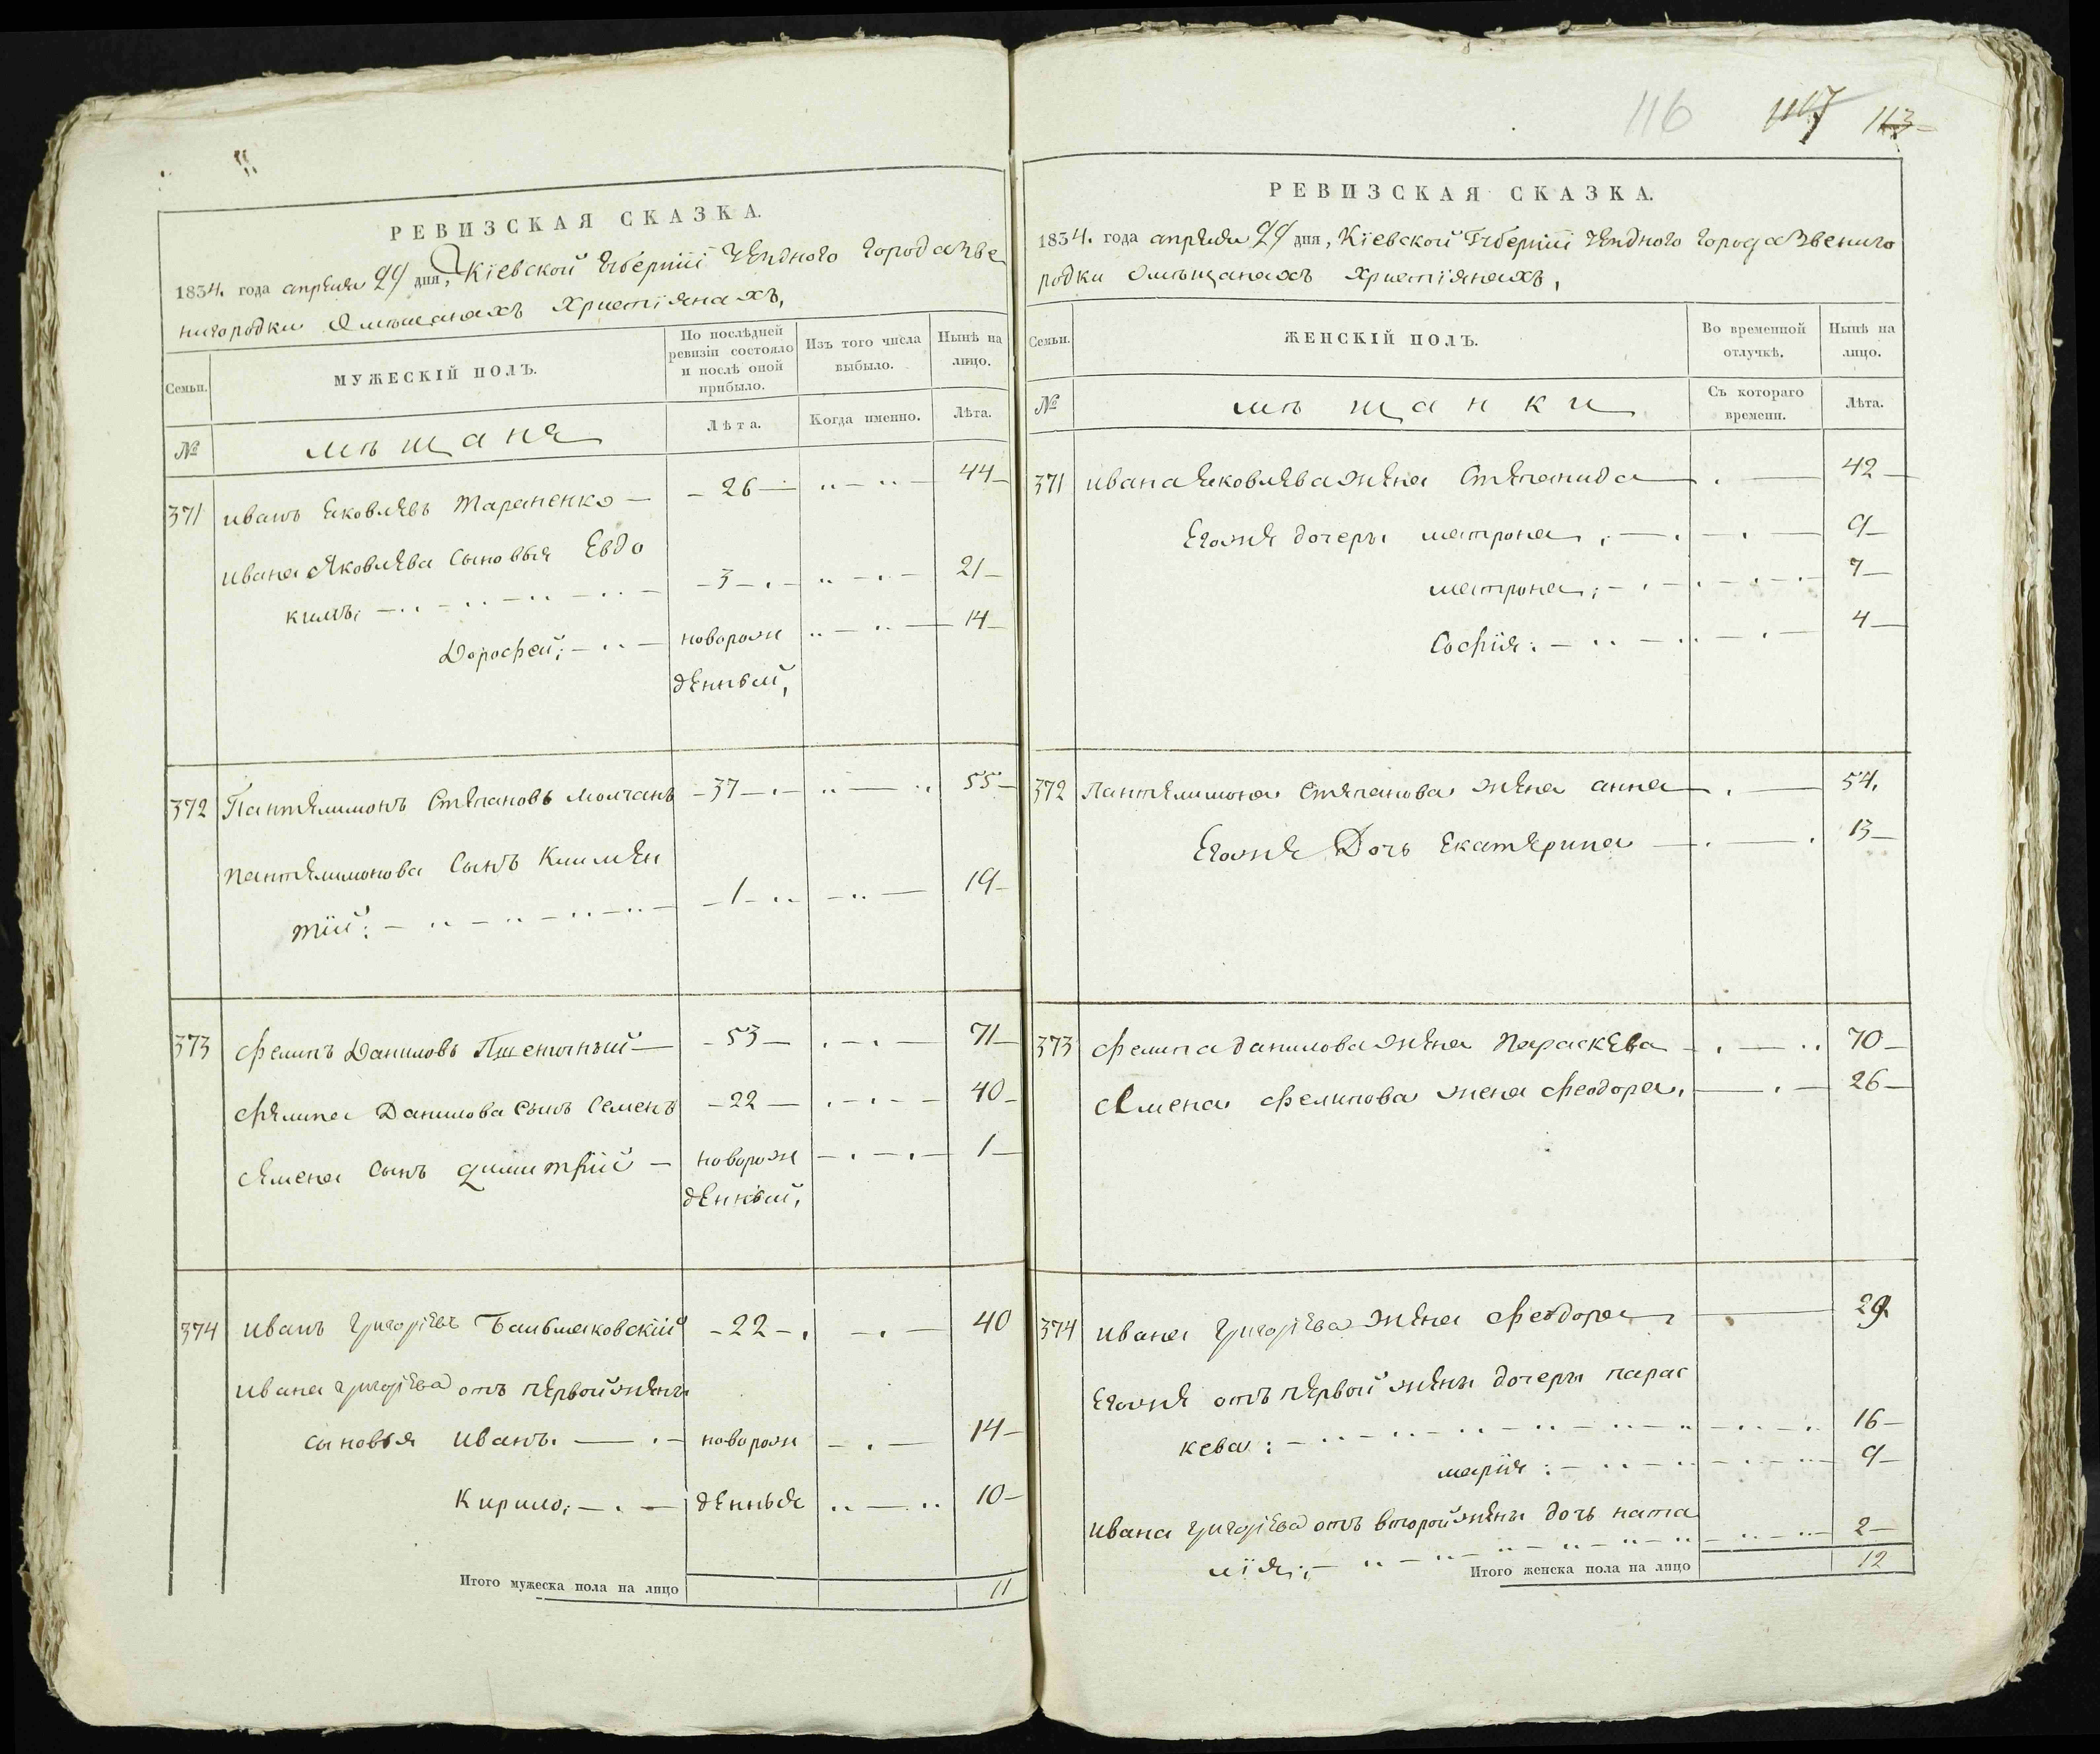 116 117 113
РЕВИЗСКАЯ СКАЗКА.
1834. года апреля 29 дня, Кіевской Губерніи уезднаго города Зве
нигородки омещанахъ христіянахъ,
Семьи.
МУЖЕСКІЙ ПОЛЪ.
По послѣдней ревизіи состояло и послѣ оной прибыло.
Изъ того числа выбыло.
Нынѣ на лицо.
№
мѣщане
Лѣта.
Когда именно.
Лѣта.
371 иванъ яковлевъ тараненко 26 44
ивана яковлева сыновья Евдо
кимъ: 3 21
Дорофей; новорож 14
денный,
372 Пантелимонъ степановъ молчанъ 37 55
пантелимонова сынъ Климен
тій: 1 19
373 Фелипъ Даниловъ Пшеничный 53 71
Фелипа Данилова сынъ семенъ 22 40
семена сынъ димитрій новорож 1
денный,
374 иванъ григорьевъ 22 40
ивана григорьева отъ первой жены
сыновья иванъ. новорож 14
Кирило; денныя 10
Итого мужеска пола на лицо 11
РЕВИЗСКАЯ СКАЗКА.
1834. года апреля 29 дня, Кіевской Губерніи уезднаго города Звениго
родки омещанахъ христіянахъ,
Семьи.
ЖЕНСКІЙ ПОЛЪ.
Во временной отлучкѣ.
Нынѣ на лицо.
№
мѣщанки
Съ котораго времени.
Лѣта.
371 ивана яковлева жена степанида 42
Егоже дочеры матрона, 9
матрона; 7
софія: 4
372 пантелимона степанова жена анна 54.
Егоже Дочь екатерина 13
373 фелипа данилова жена параскева 70
семена фелипова жена феодора, 26
374 ивана григорьева жена феодора 29
Егоже отъ первой жены дочеры парас
кева: 16
марія: 9
ивана григорьева отъ второй жены дочь ната
лія; 2
Итого женска пола на лицо 12